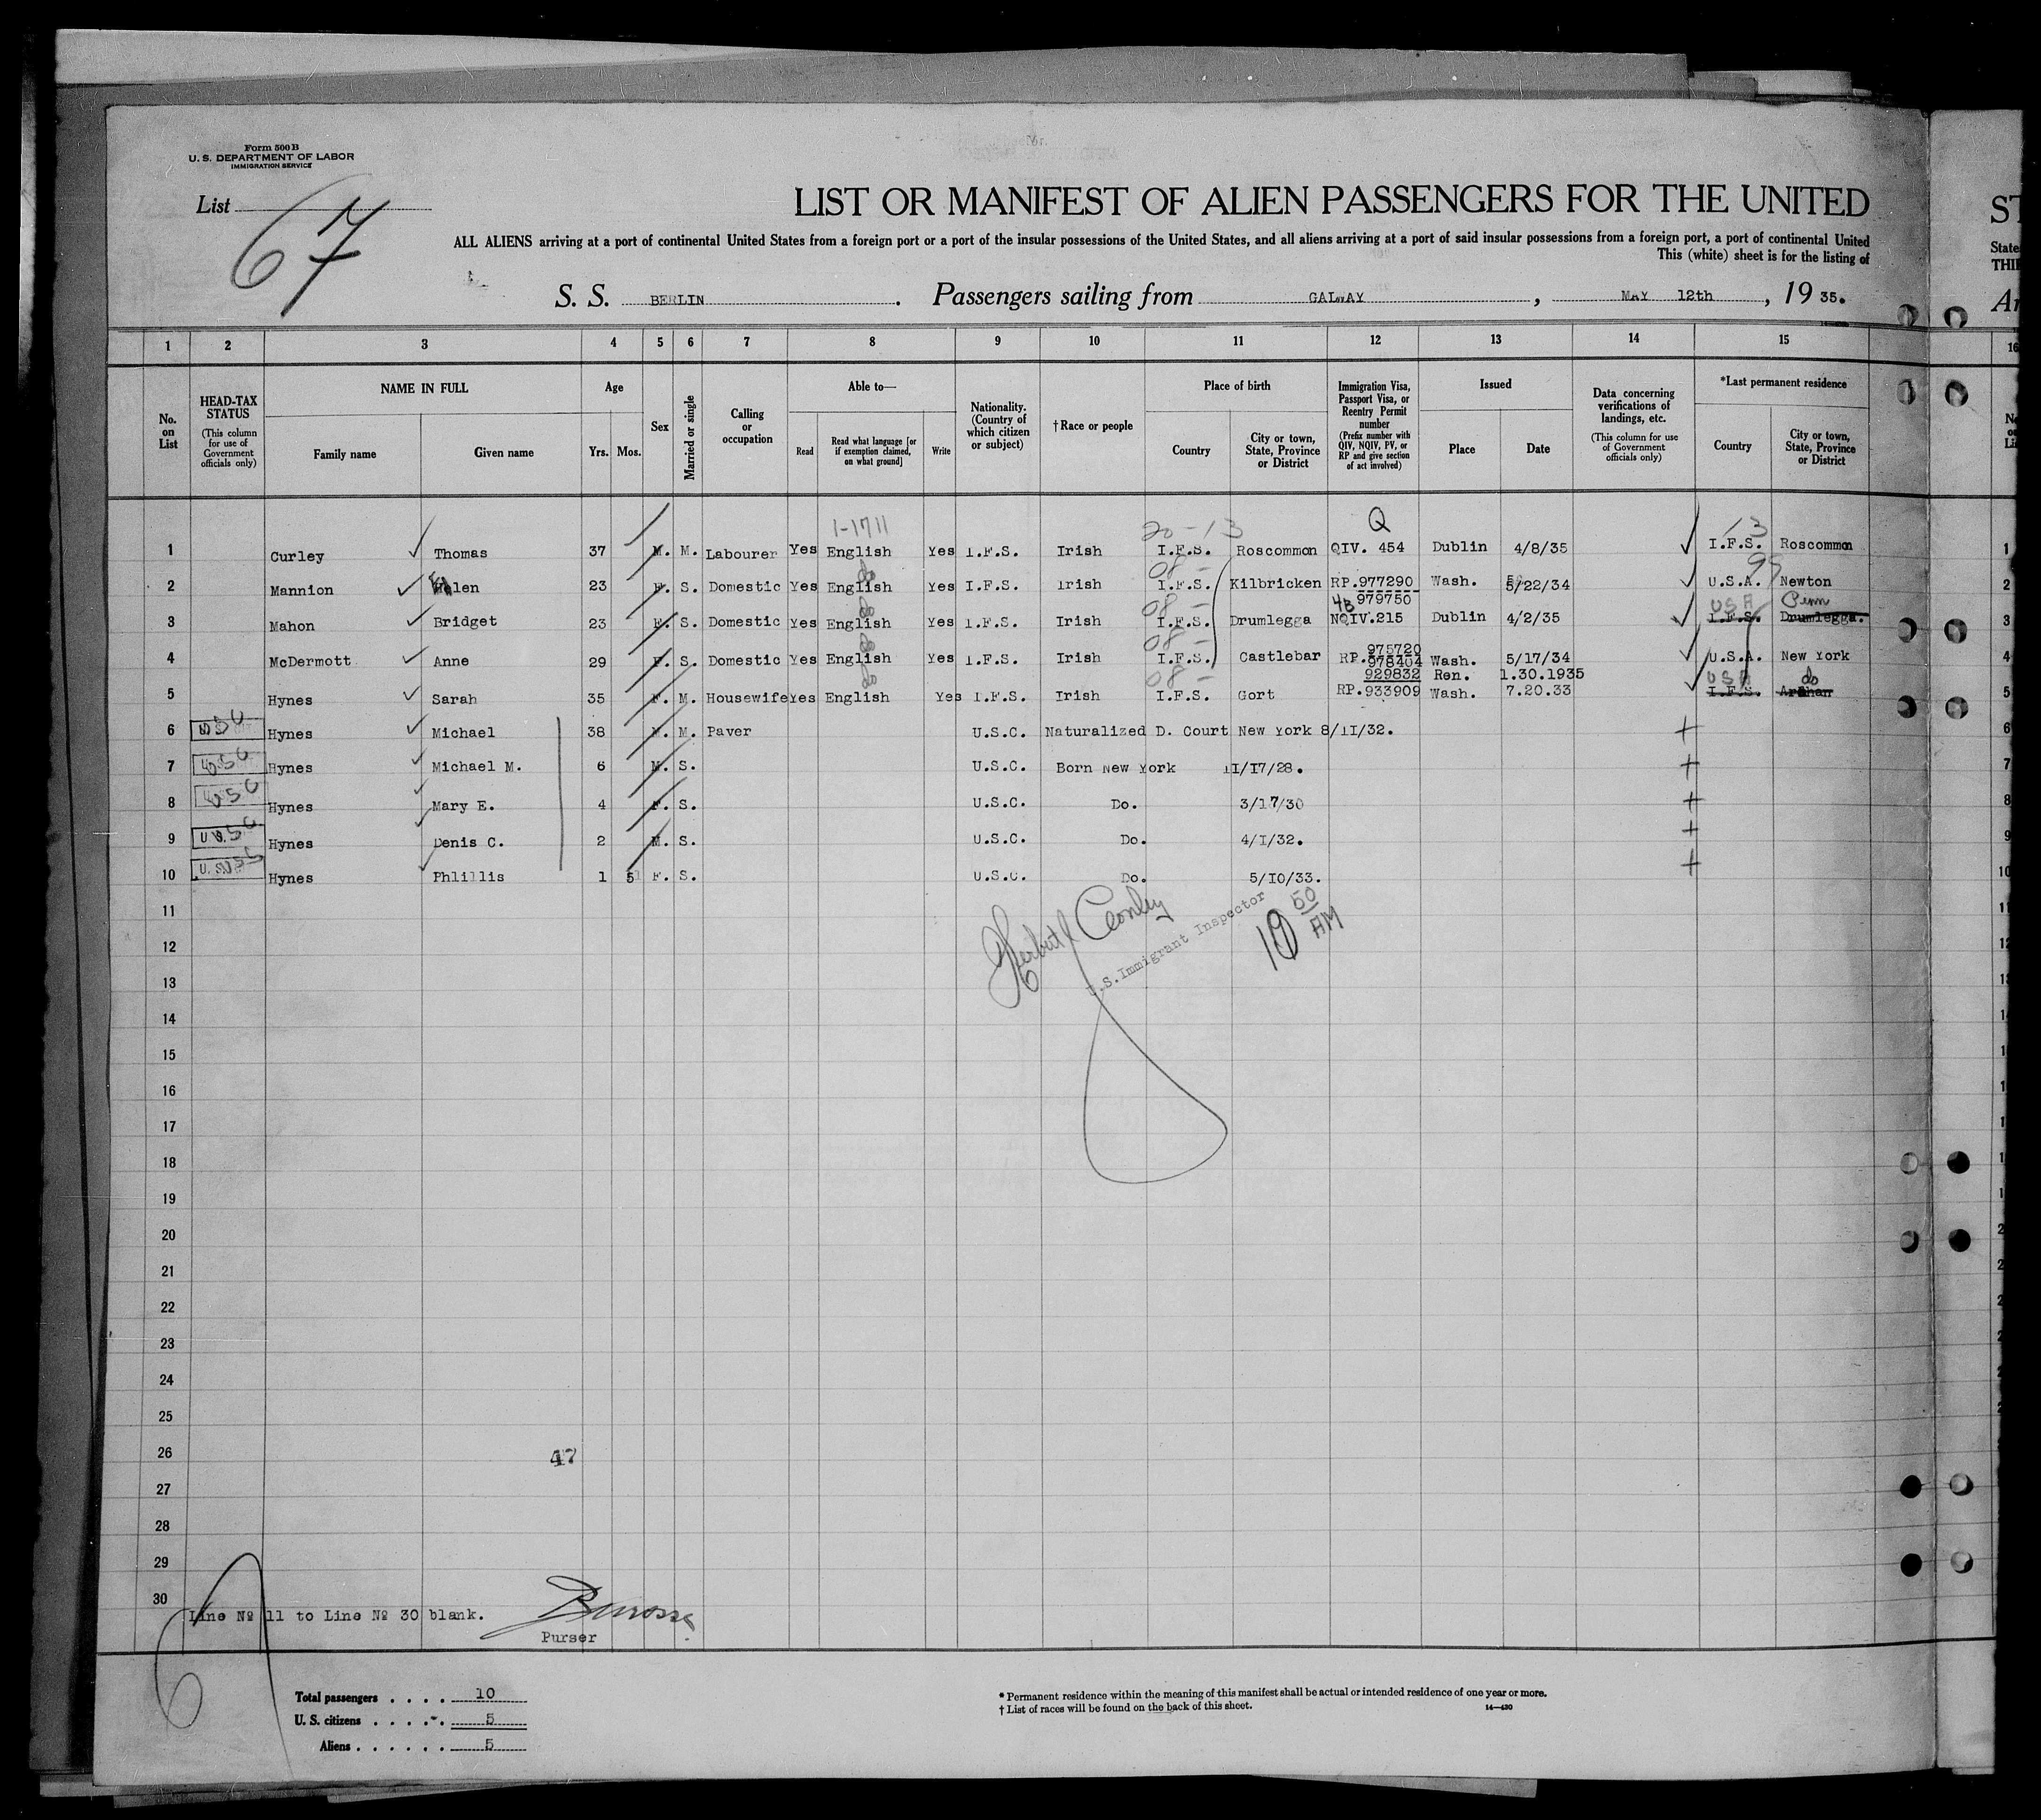 Form 500 B
U. S. DEPARTMENT OF LABOR
IMMIGRATION SERVICE
List 67
LIST OR MANIFEST OF ALIEN PASSENGERS FOR THE UNITED
ST
ALL ALIENS arriving at a port of continental United States from a foreign port or a port of the insular possessions of the United States, and all aliens arriving at a port of said insular possessions from a foreign port, a port of continental United
State
This (white) sheet is for the listing of
THI
S. S. BERLIN. Passengers sailing from GALWAY, MAY 12th, 19 35.
Ar
1 2 3 4 5 6 7 8 9 10 11 12 13 14 15 16
No. on List
HEAD-TAX STATUS
(This column for use of Government officials only)
NAME IN FULL
Family name Given name
Age
Yrs. Mos.
Sex
Married or single
Calling or occupation
Able to—
Read Read what language [or if exemption claimed, on what ground] Write
Nationality. (Country of which citizen or subject)
† Race or people
Place of birth
Country City or town, State, Province or District
Immigration Visa, Passport Visa, or Reentry Permit number
(Prefix number with QIV, NQIV, PV, or RP and give section of act involved)
Issued
Place Date
Data concerning verifications of landings, etc.
(This column for use of Government officials only)
*Last permanent residence
Country City or town, State, Province or District
1-1711 20-13 Q 13
1 Curley Thomas 37 M. M. Labourer Yes English Yes I.F.S. Irish I.F.S. Roscommon QIV. 454 Dublin 4/8/35 I.F.S. Roscommon 1
08- 97
2 Mannion Helen 23 F. S. Domestic Yes English Yes I.F.S. Irish I.F.S. Kilbricken RP.977290 Wash. 5/22/34 U.S.A. Newton 2
979750
08- 4B USA Penn
3 Mahon Bridget 23 F. S. Domestic Yes English Yes I.F.S. Irish I.F.S. Drumlegga NQIV.215 Dublin 4/2/35 I.F.S. Drumlegga. 3
08- 975720
4 McDermott Anne 29 F. S. Domestic Yes English Yes I.F.S. Irish I.F.S. Castlebar RP.978404 Wash. 5/17/34 U.S.A. New York 4
08- 929832 Ren. 1.30.1935 USA do
5 Hynes Sarah 35 F. M. Housewife Yes English Yes I.F.S. Irish I.F.S. Gort RP.933909 Wash. 7.20.33 I.F.S. 5
6 USC Hynes Michael 38 M. M. Paver U.S.C. Naturalized D. Court New York 8/11/32. 6
7 USC Hynes Michael M. 6 M. S. U.S.C. Born New York 11/17/28. 7
8 USC Hynes Mary E. 4 F. S. U.S.C. Do. 3/17/30 8
9 USC Hynes Denis C. 2 M. S. U.S.C. Do. 4/1/32. 9
10 USC Hynes Phlillis 1 5 F. S. U.S.C. Do. 5/10/33. 10
11
U.S.Immigrant Inspector
10 50 AM
12
13
14
15
16
17
18
19
20
21
22
23
24
25
26
47
27
28
29
30
Line No 11 to Line No 30 blank.
Purser
Total passengers . . . . 10
U. S. citizens . . . . . 5
Aliens . . . . . . 5
* Permanent residence within the meaning of this manifest shall be actual or intended residence of one year or more.
† List of races will be found on the back of this sheet.
14—430